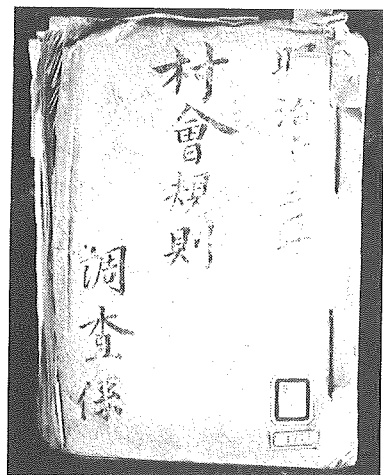 明治十三
村會規則
調査係